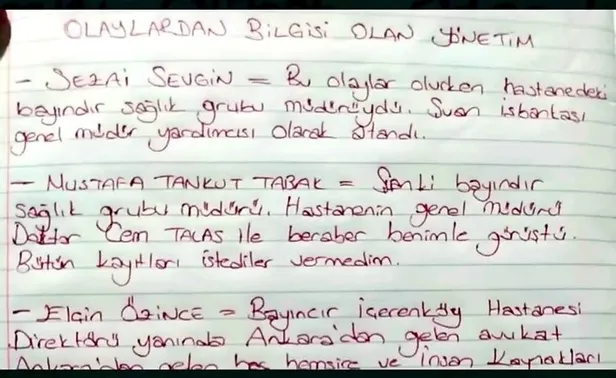 OLAYLARDAN BİLGİSİ OLAN YÖNETİM
- SEZAİ SEVGİN = Bu olaylar olurken hastanedeki
bayındır sağlık grubu müdürüydü. Şuan işbankası
genel müdür yardımcısı olarak atandı.
- MUSTAFA TANKUT TABAK = Şanki bayındır
sağlık grubu müdürü. Hastanenin genel müdürü
Doktor Cem TALAS ile beraber benimle görüştü.
Bütün kayıtları istediler vermedim.
- Elçin ÖZİNCE = Bayıncır içerenköy Hastanesi
Direktörü yanında Ankara'dan gelen avukat
Ankara'dan gelen baş hemşire ve İnsan Kaynakları